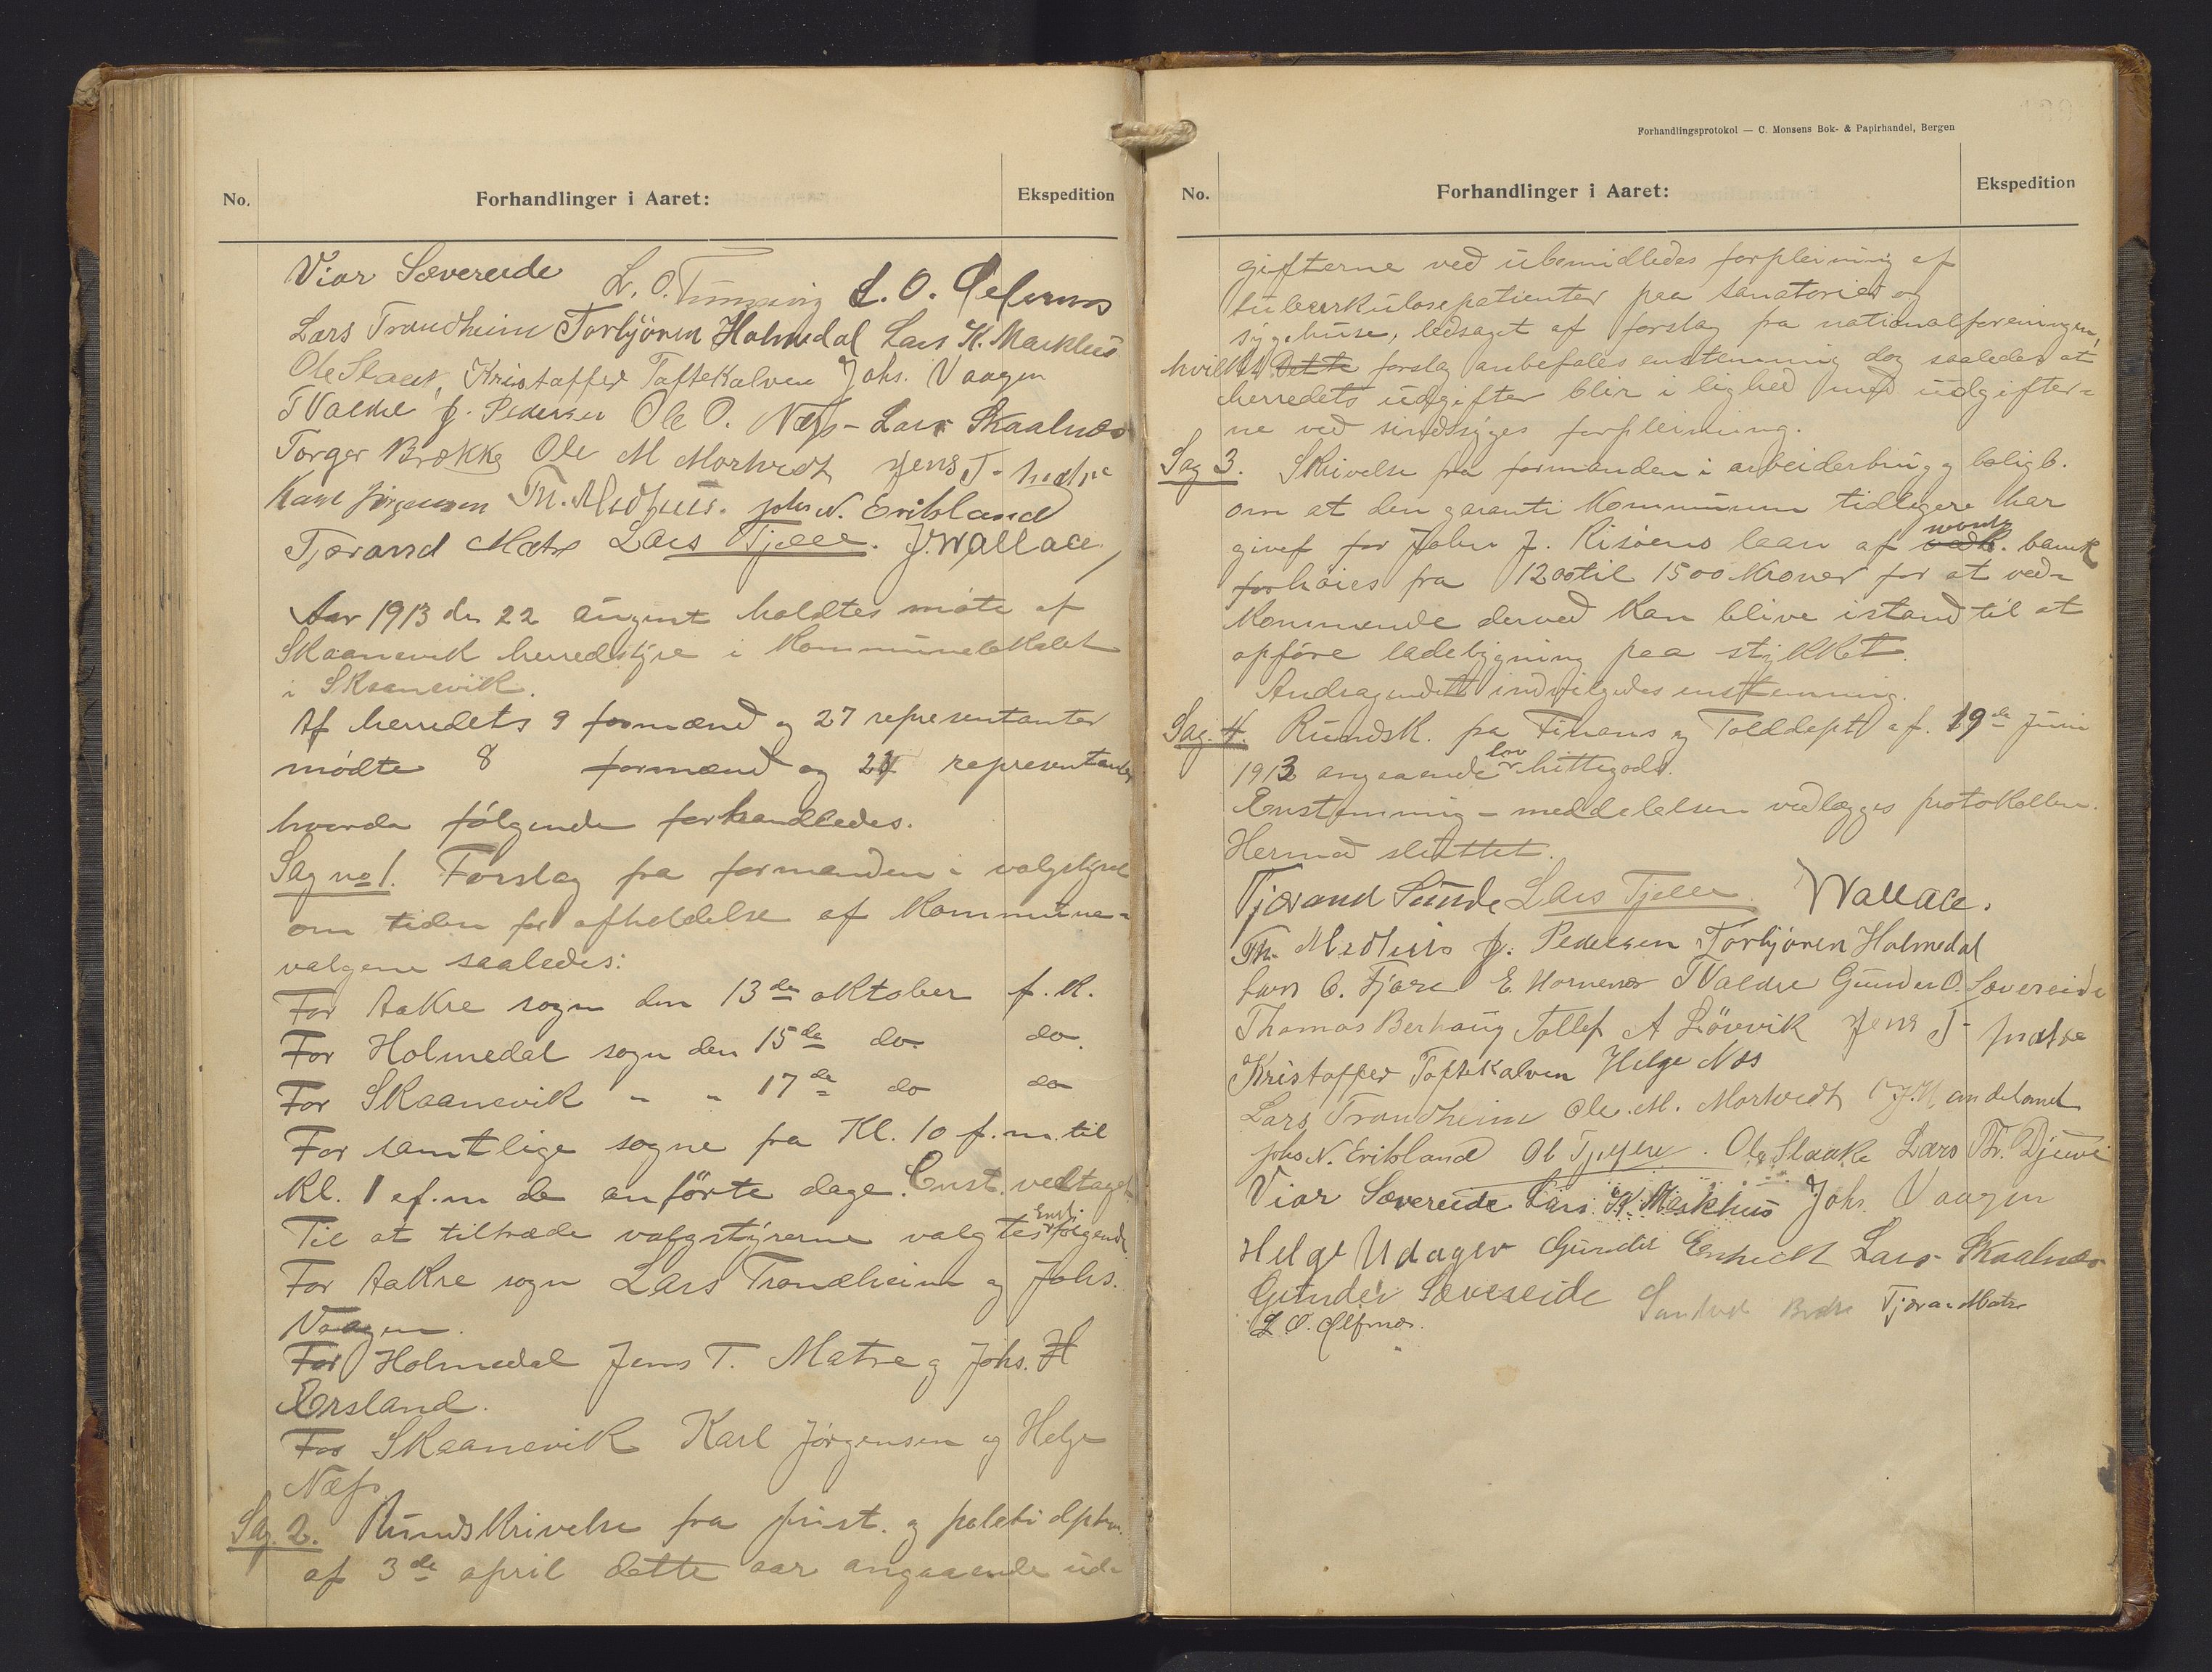 No.
Forhandlinger i Aaret:
Ekspedition
Viar Sævereide L. O. L. O. Ølfernæs
Lars Trondheim Torbjören Holmedal Lars K. Markhus
Ole Slaak, Kristoffer Toftekalven Johs. Vaagen
T Valdre J. Pedersen Ole O. Næss - Lars Skaalnæs
Torger Brekke Ole M Mortvedt Jens T. Matre
Karl Jörgensen Th. Medhus. Johs N. Eriksland
Tjærand Matre Lars Tjelle. J. Wallace
Aar 1913 den 22 august holdtes møte af
Skaanevik herredstyre i Kommunelokalet
i Skaanevik.
Af herredets 9 formænd og 27 representanter
mødte 8 formænd og 24 representanter
hvorda følgende forhandledes.
Sag no 1. Forslag fra formanden i valgstyret
om tiden for afholdelse af Kommune-
valgene saaledes:
For Aakre sogn den 13de oktober f. k.
For Holmedal sogn den 15de do. do.
For Skaanevik " " 17de do do
For samtlige sogne fra Kl. 10 f.m. til
Kl. 1 ef.m de anførte dage. Enst. vedtaget
Til at tiltræde valgstyrerne valgtes Enst. følgende
For Aakre sogn Lars Trondheim og Johs.
Vaagen.
For Holmedal Jens T. Matre og Johs. H
Ersland.
For Skaanevik Karl Jørgensen og Helge
Næss
Sag. 2. Rundskrivelse fra just. og politi dptm.
af 3de april dette aar angaaende ud-
Forhandlingsprotokol — C. Monsens Bok- & Papirhandel, Bergen
No.
Forhandlinger i Aaret:
Ekspedition
gifterne ved ubemidledes forpleining af
tuberkulosepatienter paa sanatorier og
sygehuse, ledsaget af forslag fra nationalforeningen,
hvilket Dette forslag anbefales enstemmig dog saaledes at
herredets udgifter blir i lighed med udgifter-
ne ved sindssyges forpleining.
Sag 3. Skrivelse fra formanden i arbeiderbrug og boligb.
om at den garanti Kommunen tidligere har
givet for John J. Risøens laan af bank
forhøies fra 1200 til 1500 Kroner for at ved-
kommende derved kan blive istand til at
opføre ladebygning paa stykket.
Andragendet indvilgedes enstemmig.
Sag. 4. Rundsk. fra Finans og Tolddept af. 19de Juni
1913 angaaende lov hittegods.
Enstemmig - meddelelsen vedlægges protokollen.
Hermed sluttet.
Tjærand Sunde Lars Tjelle Wallace.
Th. Medhus J. Pedersen Torbjören Holmedal
Lars O. Fjære E. Hornenes T Valdre Gunder O. Sævereide
Thomas Berhaug Tollef A Lövvik Jens T- Matre
Kristoffer Toftekalven Helge Næs
Lars Trondheim Ole. M. Mortvedt
Johs N. Eriksland Ole Slaake Lars Th. Djuve
Viar Sævereide Lars K. Markhus Johs. Vaagen
Helge Lars Skaalnæs
Gunder Sævereide Tjæran Matre
L O. Ølfernæs.